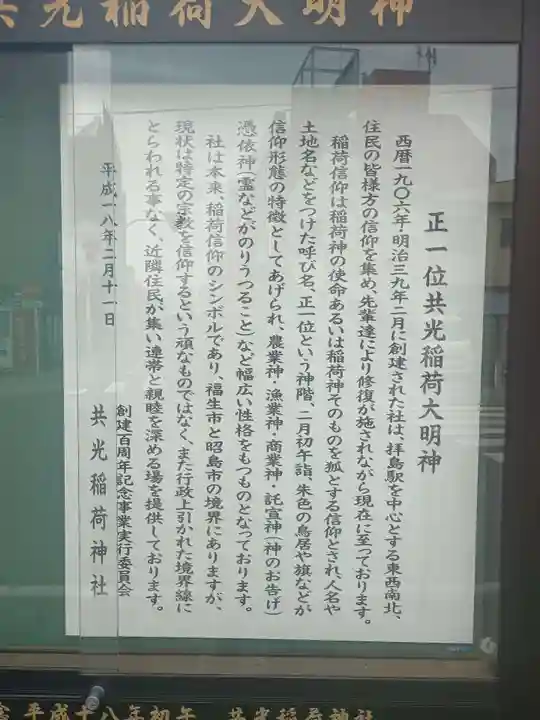 共光稲荷大明神
正一位共光稲荷大明神
西暦一九〇六年・明治三九年二月に創建された社は、拝島駅を中心とする東西南北、
住民の皆様方の信仰を集め、先輩達により修復が施されながら現在に至っております。
稲荷信仰は稲荷神の使命あるいは稲荷神そのものを狐とする信仰とされ、人名や
土地名などをつけた呼び名、正一位という神階、二月初午詣、朱色の鳥居や旗などが
信仰形態の特徴としてあげられ、農業神・漁業神・商業神・託宣神(神のお告げ)
憑依神(霊などがのりうつること)など幅広い性格をもつものとなっております。
社は本来、稲荷信仰のシンボルであり、福生市と昭島市の境界にありますが、
現状は特定の宗教を信仰するという頑なものではなく、また行政上引かれた境界線に
とらわれる事なく、近隣住民が集い連帯と親睦を深める場を提供しております。
平成一八年二月十一日
創建百周年記念事業実行委員会
共光稲荷神社
平成十八年初午 共光稲荷神社